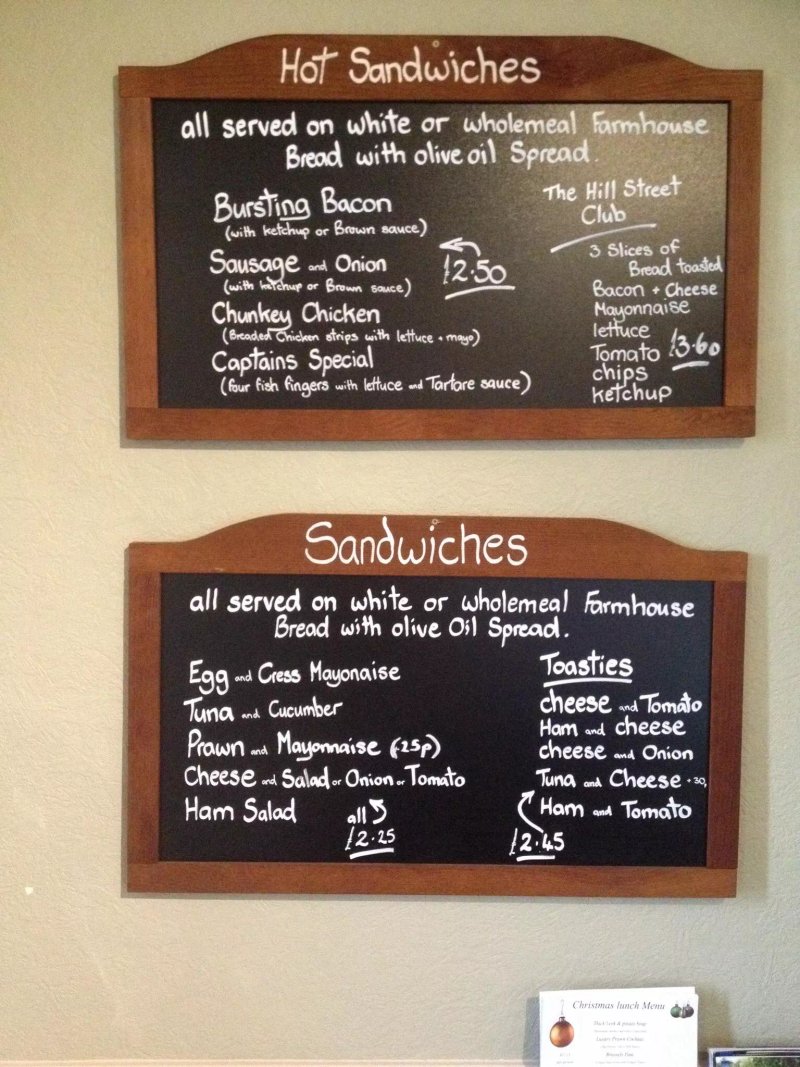 Hot Sandwiches
all served on white or wholemeal Farmhouse
Bread with olive oil Spread.
Bursting Bacon
(with ketchup or Brown sauce)
Sausage and Onion
(with ketchup or Brown sauce)
£2.50
Chunkey Chicken
(Breaded Chicken strips with lettuce + mayo)
Captains Special
(four fish fingers with lettuce and Tartare sauce)
The Hill Street
Club
3 Slices of
Bread toasted
Bacon + Cheese
Mayonnaise
lettuce
Tomato £3.60
chips
ketchup
Sandwiches
all served on white or wholemeal Farmhouse
Bread with olive Oil Spread.
Egg and Cress Mayonaise
Tuna and Cucumber
Prawn and Mayonnaise (+25p)
Cheese and Salad or Onion or Tomato
Ham Salad
all
£2.25
Toasties
cheese and Tomato
Ham and cheese
cheese and Onion
Tuna and Cheese +30p
Ham and Tomato
£2.45
Christmas lunch Menu